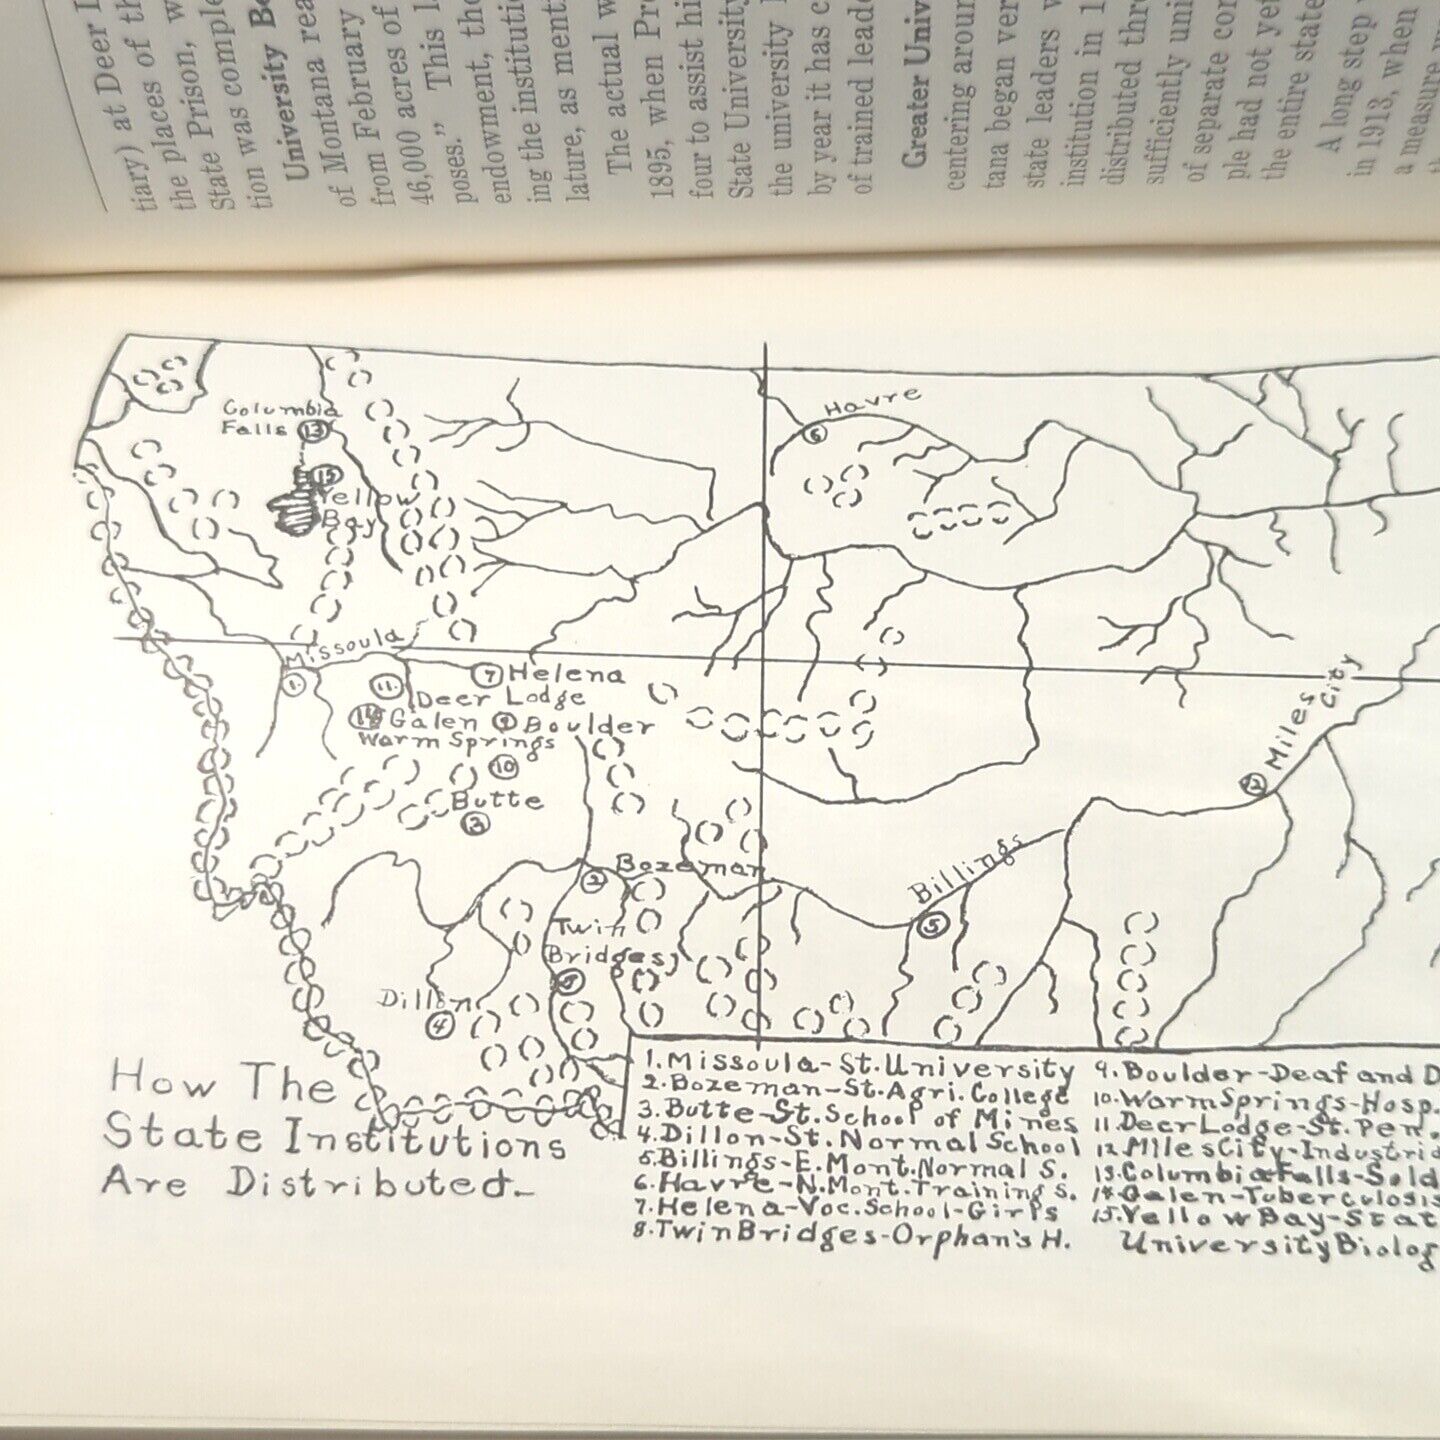 tiary) at Deer
the places of th
State Prison, w
State
tion was comple
University B
of Montana rea
from February
46,000 acres of
poses." This l
endowment, tho
ing the instituti
lature, as menti
The actual w
1895, when Pr
four to assist hi
State University
the university
by year it has c
of trained leade
Greater Univ
centering aroun
tana began ver
state leaders
institution in 1
distributed thr
sufficiently uni
of separate co
ple had not yet
the entire state
A long step
in 1913, when
a measure
Columbia
Falls 13
15
Yellow
Bay
Havre
6
Missoula
1
7 Helena
11.
Deer Lodge
14 Galen 9 Boulder
Warm Springs
10
Butte
13
Miles
City
12
Bozeman
2
Billings
5
Twin
Bridges
8
Dillon
4
How The
State Institutions
Are Distributed-
1. Missoula-St. University
2. Bozeman-St. Agri. College
3. Butte-St. School of Mines
4. Dillon-St. Normal School
5. Billings-E. Mont. Normal S.
6. Havre-N. Mont. Training S.
7. Helena-Voc. School-Girls
8. Twin Bridges-Orphan's H.
9. Boulder-Deaf and D
10. Warm Springs-Hosp.
11. Deer Lodge-St. Pen.
12. Miles City-Industria
13. Columbia Falls-Sold
14. Galen-Tuberculosis
15. Yellow Bay-Stat
University Biolog